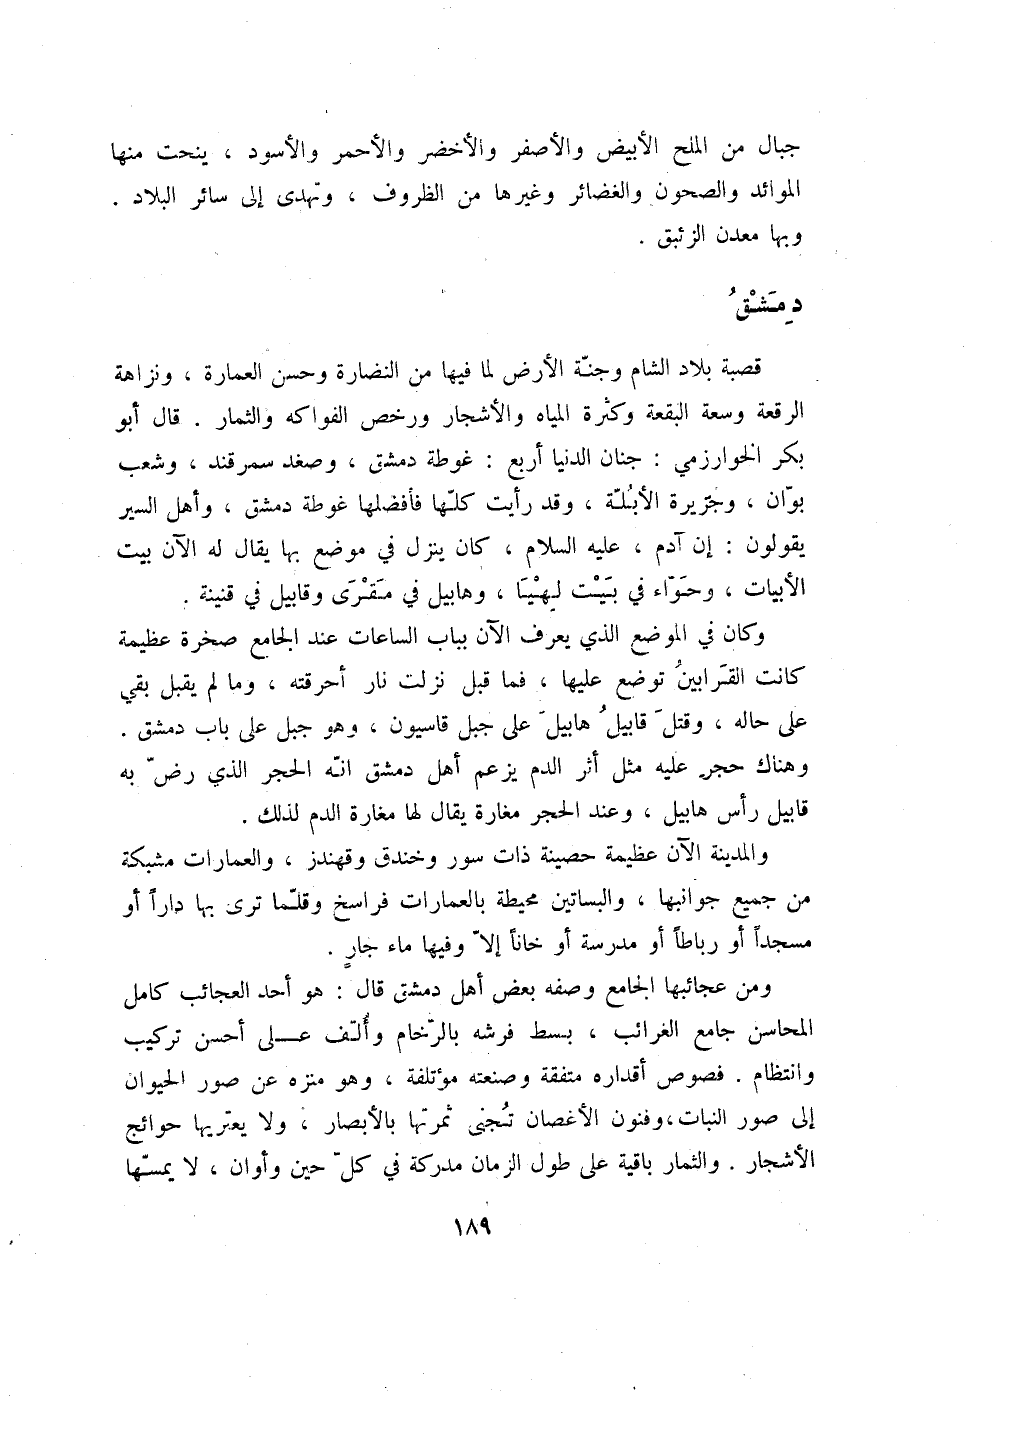 جبال من الملح الأبيض والأصفر والأخضر والأحمر والأسود ، ينحت منها
الموائد والصحون والغضائر وغيرها من الظروف ، وتهدى إلى سائر البلاد .
وبها معدن الزئبق .
دِمَشْقُ
قصبة بلاد الشام وجنّة الأرض لما فيها من النضارة وحسن العمارة ، ونزاهة
الرقعة وسعة البقعة وكثرة المياه والأشجار ورخص الفواكه والثمار . قال أبو
بكر الخوارزمي : جنان الدنيا أربع : غوطة دمشق ، وصغد سمرقند ، وشعب
بوّان ، وجزيرة الأبُلّة ، وقد رأيت كلّها فأفضلها غوطة دمشق ، وأهل السير
يقولون : إن آدم ، عليه السلام ، كان ينزل في موضع بها يقال له الآن بيت
الأبيات ، وحَوّاء في بَيْت لِهْيَا ، وهابيل في مَقْرَى وقابيل في قنينة .
وكان في الموضع الذي يعرف الآن بباب الساعات عند الجامع صخرة عظيمة
كانت القَرابينُ توضع عليها ، فما قبل نزلت نار أحرقته ، وما لم يقبل بقي
على حاله ، وقتلَ قابيلُ هابيلَ على جبل قاسيون ، وهو جبل على باب دمشق .
وهناك حجر عليه مثل أثر الدم يزعم أهل دمشق انّه الحجر الذي رضّ به
قابيل رأس هابيل ، وعند الحجر مغارة يقال لها مغارة الدم لذلك .
والمدينة الآن عظيمة حصينة ذات سور وخندق وقهندز ، والعمارات مشبكة
من جميع جوانبها ، والبساتين محيطة بالعمارات فراسخ وقلّما ترى بها داراً أو
مسجداً أو رباطاً أو مدرسة أو خاناً إلاّ وفيها ماء جارٍ .
ومن عجائبها الجامع وصفه بعض أهل دمشق قال : هو أحد العجائب كامل
المحاسن جامع الغرائب ، بسط فرشه بالرّخام وأُلّف عـــلى أحسن تركيب
وانتظام . فصوص أقداره متفقة وصنعته مؤتلفة ، وهو منزه عن صور الحيوان
إلى صور النبات،وفنون الأغصان تُجنى ثمرتها بالأبصار ، ولا يعتريها حوائج
الأشجار . والثمار باقية على طول الزمان مدركة في كلّ حين وأوان ، لا يمسّها
١٨٩